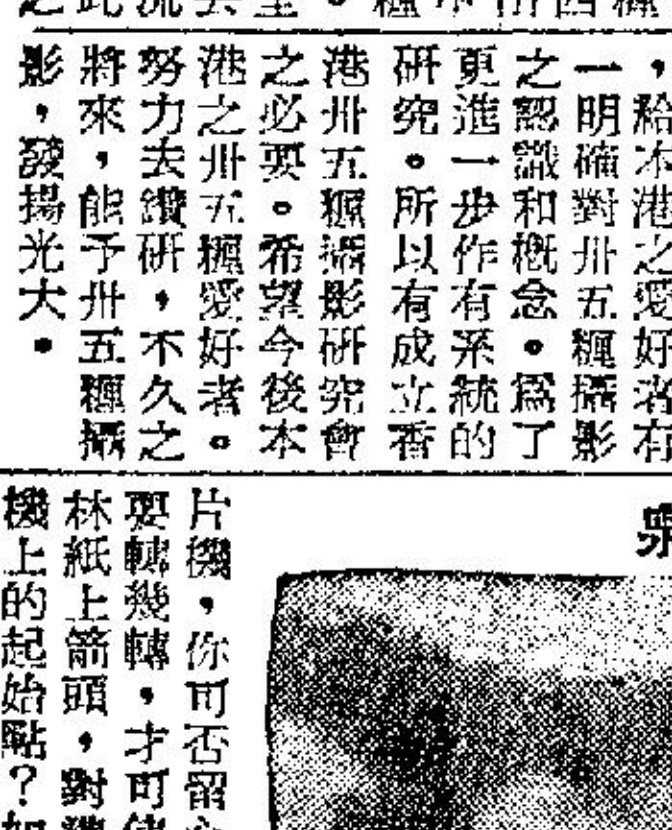 ，給本港之愛好者有
一明確對卅五糎攝影
之認識和概念。爲了
更進一步作有系統的
研究。所以有成立香
港卅五糎攝影研究會
之必要。希望今後本
港之卅五糎愛好者。
努力去鑽研，不久之
將來，能予卅五糎攝
影，發揚光大。
片機，你可否留心
要轉幾轉，才可使
林紙上箭頭，對準
機上的起始點？如